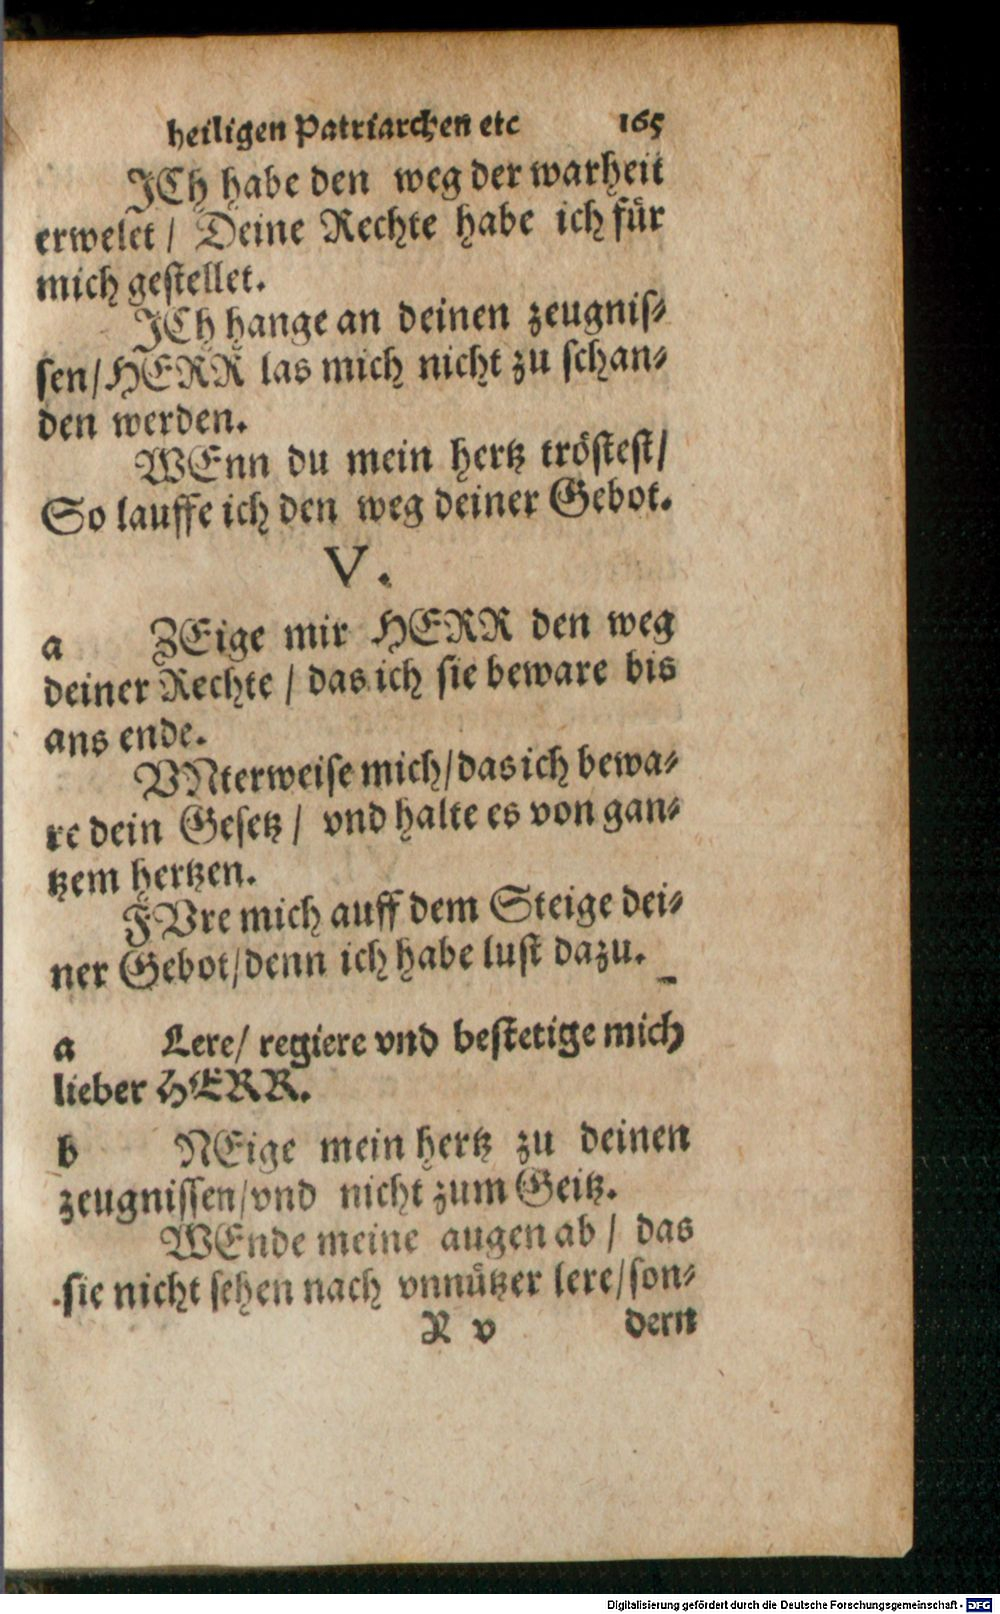 heiligen Patriarchen etc 165
JCh habe den weg der warheit
erwelet / Deine Rechte habe ich für
mich gestellet.
JCh hange an deinen zeugnis⸗
sen/ HERR las mich nicht zu schan⸗
den werden.
WEnn du mein hertz tröstest/
So lauffe ich den weg deiner Gebot.
V.
a ZEige mir HERR den weg
deiner Rechte / das ich sie beware bis
ans ende.
VNterweise mich/ das ich bewa⸗
re dein Gesetz / vnd halte es von gan⸗
tzem hertzen.
FVre mich auff dem Steige dei⸗
ner Gebot/ denn ich habe lust dazu.
a Lere/ regiere vnd bestetige mich
lieber HERR.
b NEige mein hertz zu deinen
zeugnissen/ vnd nicht zum Geitz.
WEnde meine augen ab / das
sie nicht sehen nach vnnützer lere/ son⸗
R v dern
Digitalisierung gefördert durch die Deutsche Forschungsgemeinschaft - DFG